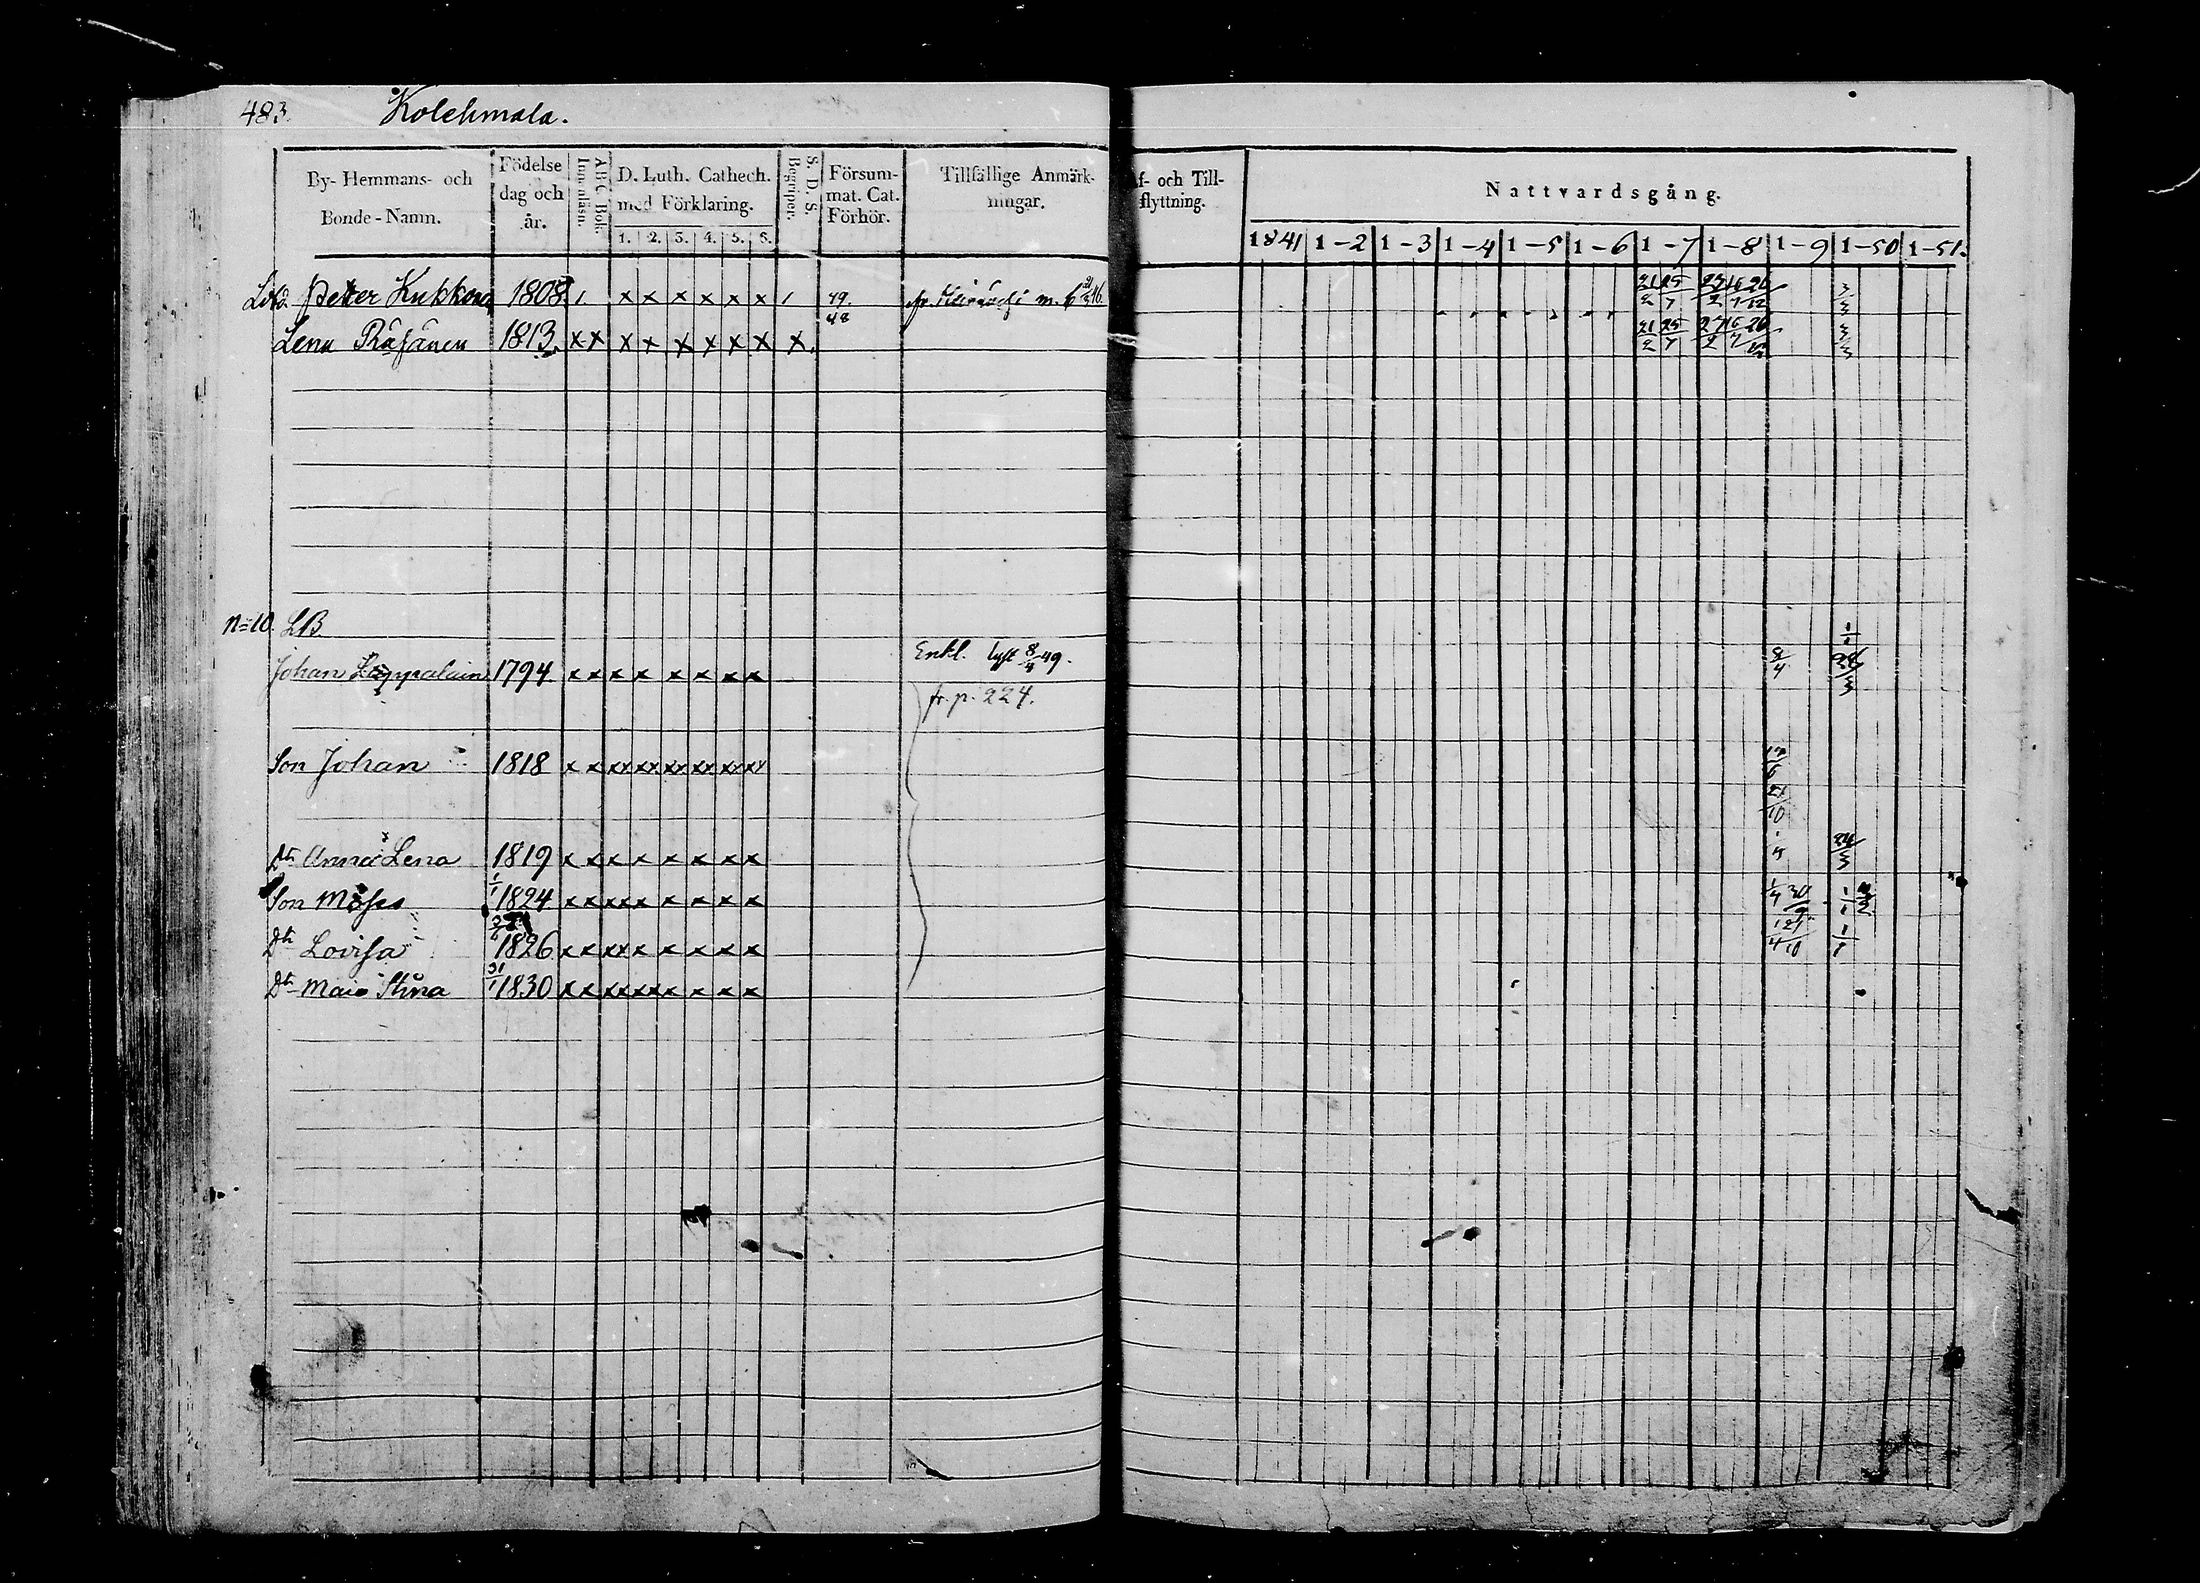 483. Kolehmala.
By- Hemmans- och Bonde-Namn.
Födelse dag och år.
ABC Bok. Innanläsn.
D. Luth. Cathech. med Förklaring.
1. 2. 3. 4. 5. 6.
S. D. S. Begreper.
Försummat. Cat. Förhör.
Tillfällige Anmärkningar.
f- och Tillflyttning.
Nattvardsgång.
1841 1-2 1-3 1-4 1-5 1-6 1-7 1-8 1-9 1-50 1-51.
Petter Kukkonen 1808 / x x x x x x / 49. 48 fr.
21/2 25/7 27/2 16/7 26/12 3/3
Lena Räsänen 1813. x x x x x x x x x.
21/2 25/7 27/2 16/7 26/12 3/3
N=10. LB.
Johan Leppalain 1794 x x x x x x x x Enkl. lyst 8/4 49. 8/4 1/1
fr. p. 224.
Son Johan 1818 x x xx xx xx xx xx xx 17/6
21/10
Dtr Anna Lena 1819 x x x x x x x x 24/3
Son Moses 1/1 1824 x x x x x x x x x 1/4 30/9 1/1
Dtr Lovisa 1826 x x xx x x x x x 1/4 21/10 1/1
Dtr Maia Stina 31/1 1830 x x xx xx x x x x